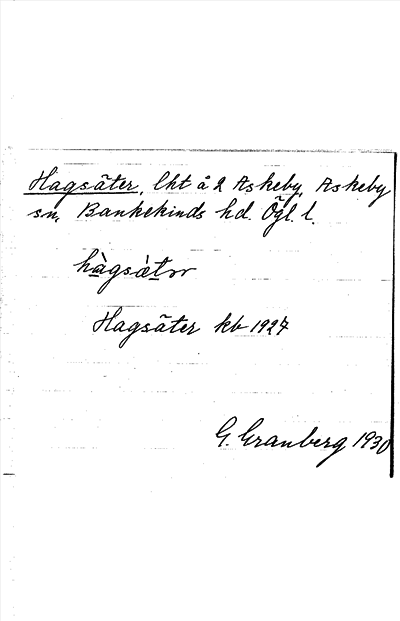 Hagsäter, lht å 2 Askeby, Askeby
sn, Bankekinds hd. Ögl. l.
hàgsätər
Hagsäter kb 1927
G. Granberg 1930